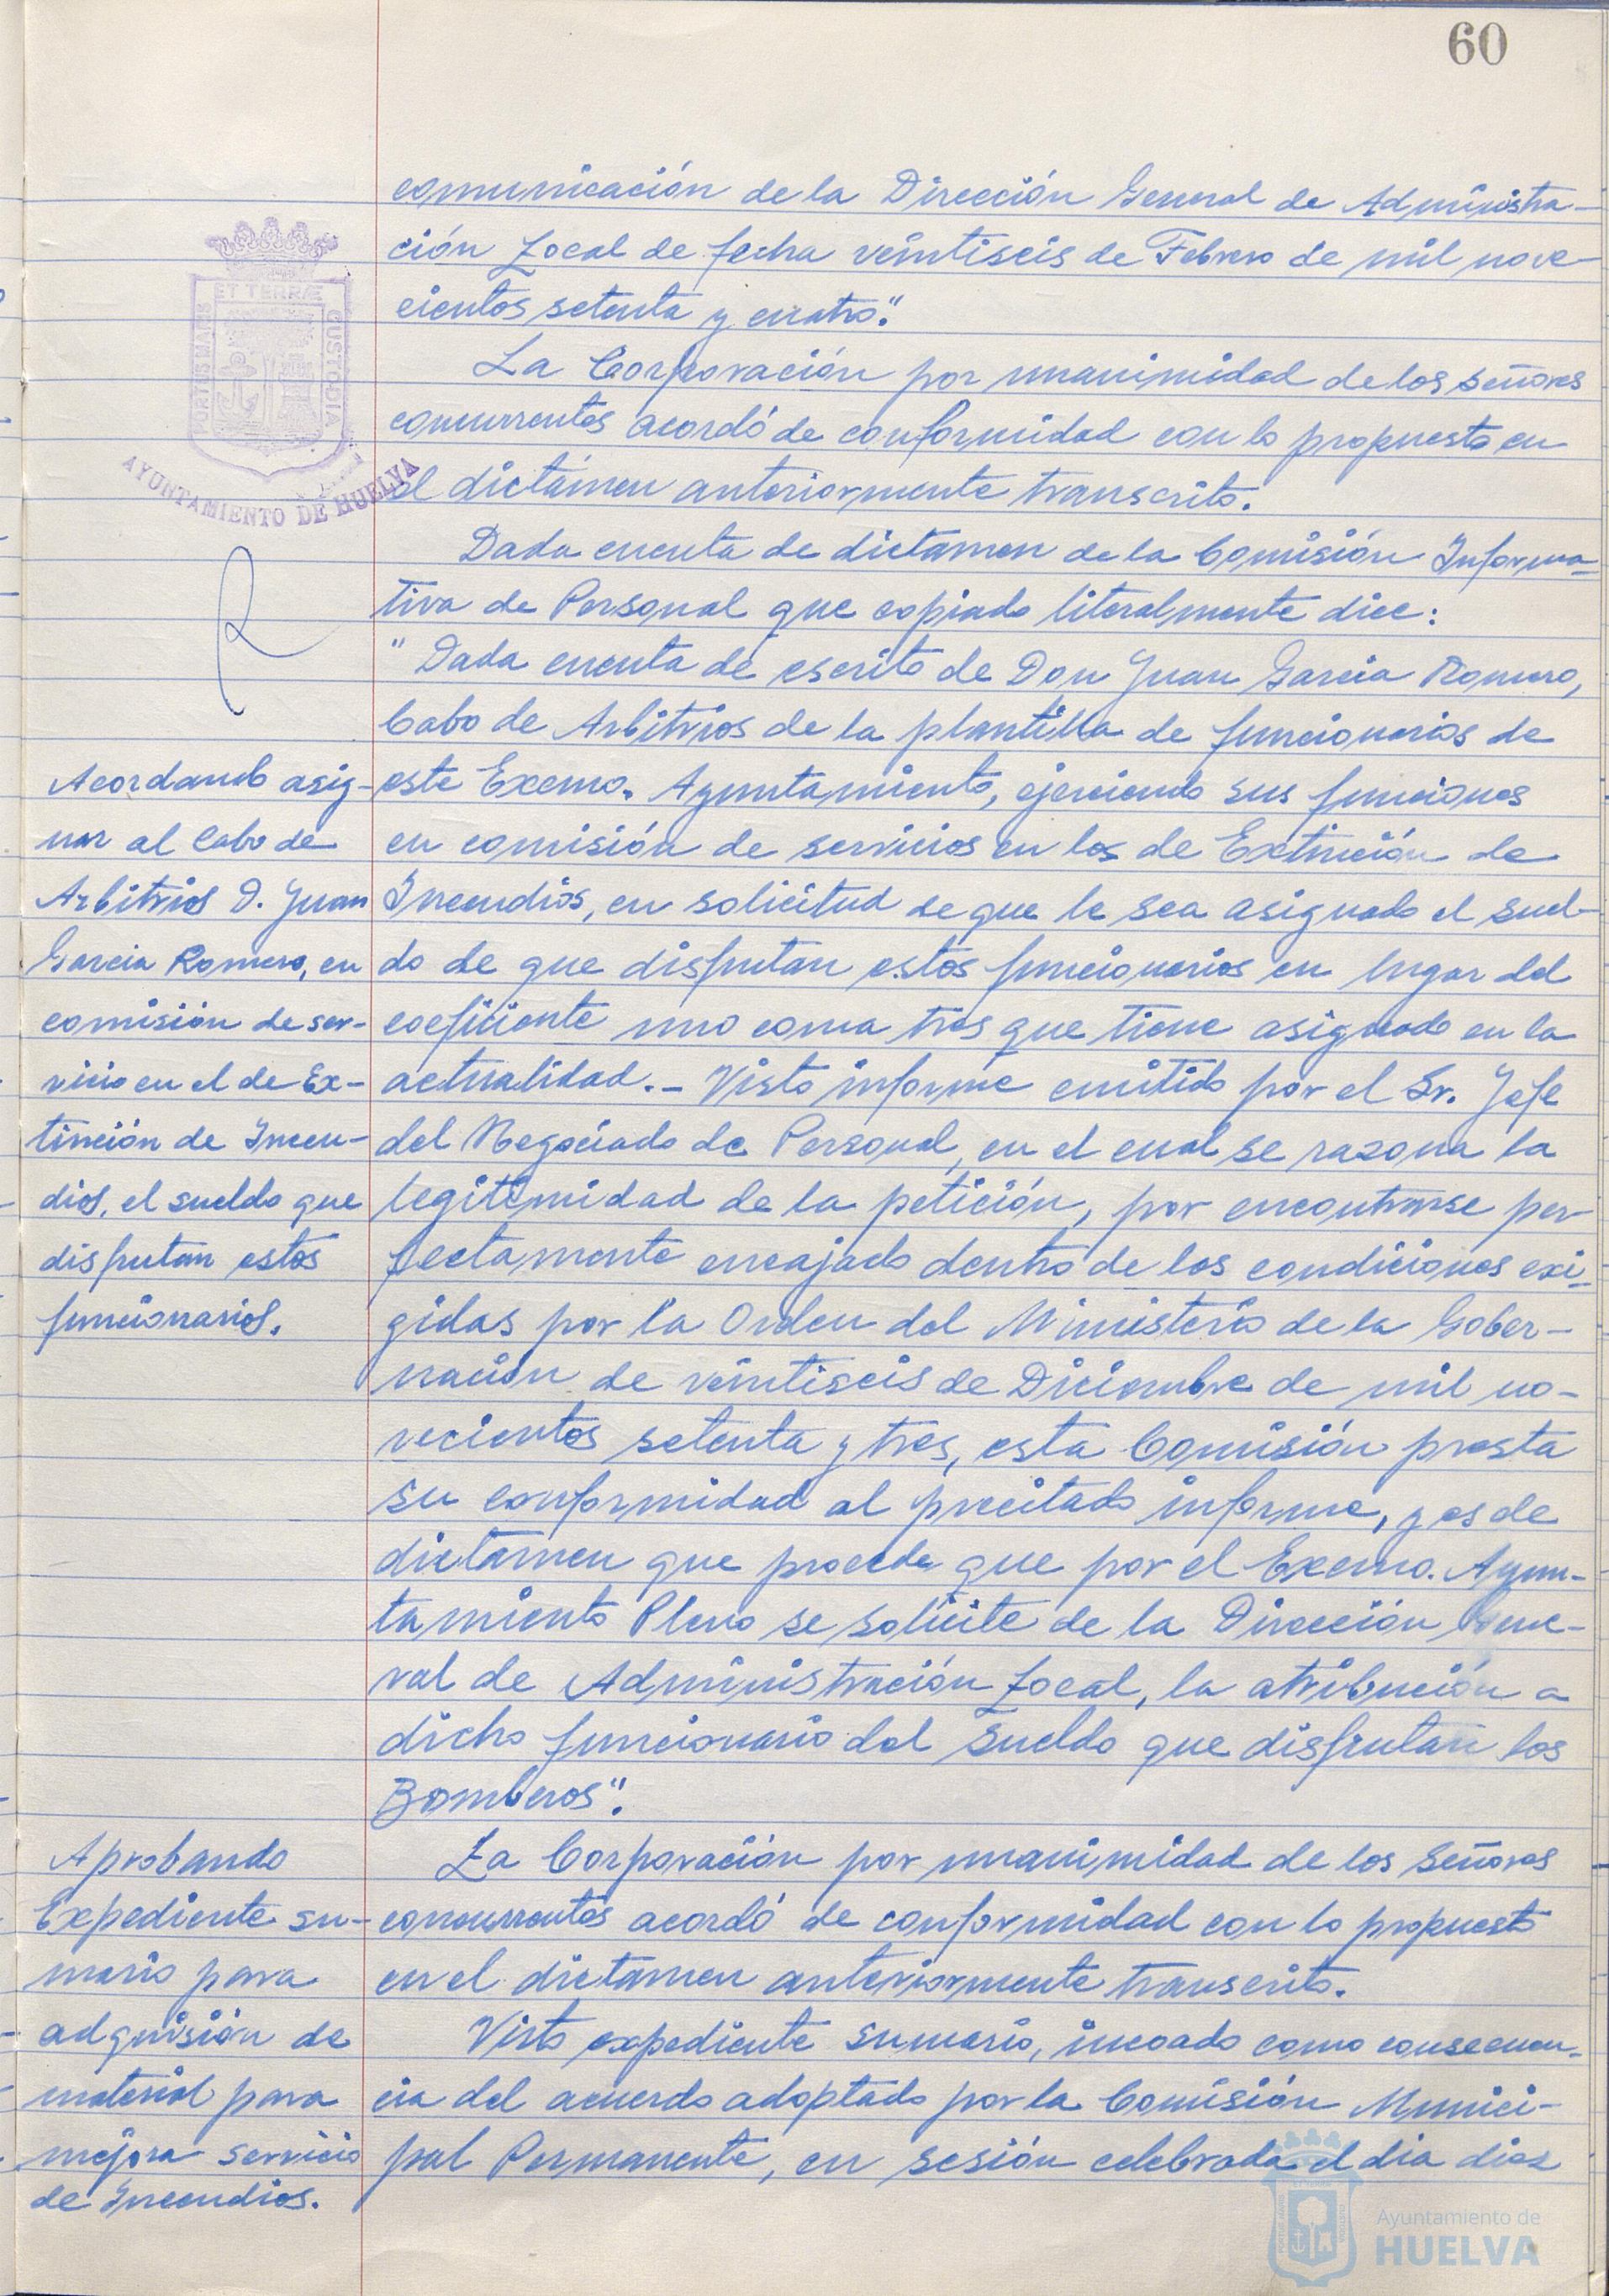 60
comunicación de la Dirección General de Administra-
ción Local de fecha veintiseis de Febrero de mil nove-
cientos setenta y cuatro".
La Corporación por unanimidad de los señores
concurrentes acordó de conformidad con lo propuesto en
el dictámen anteriormente transcrito.
Dada cuenta de dictamen de la Comisión Informa-
tiva de Personal que copiado literalmente dice:
"Dada cuenta de escrito de Don Juan Garcia Romero,
Cabo de Arbitrios de la plantilla de funcionarios de
este Excmo. Ayuntamiento, ejerciendo sus funciones
en comisión de servicios en los de Extinción de
Incendios, en solicitud de que le sea asignado el suel-
do de que disfrutan estos funcionarios en lugar del
coeficiente uno coma tres que tiene asignado en la
actualidad.- Visto informe emitido por el Sr. Jefe
del Negociado de Personal, en el cual se razona la
legitimidad de la petición, por encontrarse per-
fectamente encajado dentro de las condiciones exi-
gidas por la Orden del Ministerio de la Gober-
nación de veintiseis de Diciembre de mil no-
vecientos setenta y tres, esta Comisión presta
su conformidad al precitado informe, y es de
dictamen que procede que por el Excmo. Ayun-
tamiento Pleno se solicite de la Dirección Gene-
ral de Administración Local, la atribución a
dicho funcionario del sueldo que disfrutan los
Bomberos".
La Corporación por unanimidad de los Señores
concurrentes acordó de conformidad con lo propuesto
en el dictamen anteriormente transcrito.
Visto expediente sumario, incoado como consecuen-
cia del acuerdo adoptado por la Comisión Munici-
pal Permanente, en sesión celebrada el dia diez
PORTUS MARIS
ET TERRÆ
CUSTODIA
AYUNTAMIENTO DE HUELVA
Acordando asig-
nar al Cabo de
Arbitrios D. Juan
Garcia Romero, en
comisión de ser-
vicio en el de Ex-
tinción de Incen-
dios, el sueldo que
disfrutan estos
funcionarios.
Aprobando
Expediente su-
mario para
adquisión de
material para
mejora servicio
de Incendios.
Ayuntamiento de
HUELVA